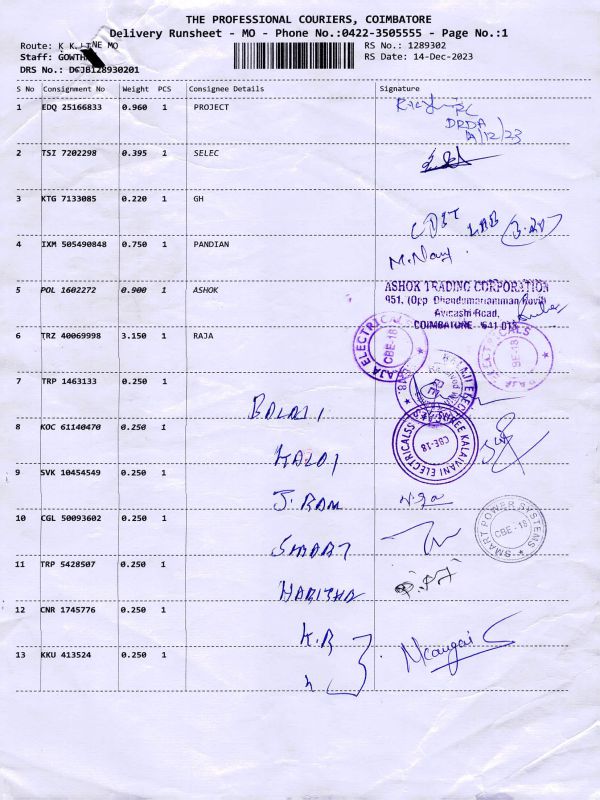 THE PROFESSIONAL COURIERS, COIMBATORE
Delivery Runsheet - MO - Phone No.:0422-3505555 - Page No.:1
Route: K K. NE MO RS No.: 1289302
Staff: GOWTH RS Date: 14-Dec-2023
DRS No.: DCJB128930201
S No Consignment No Weight PCS Consignee Details Signature
1 EDQ 25166833 0.960 1 PROJECT
DRDA
14/12/23
2 TSI 7202298 0.395 1 SELEC
3 KTG 7133085 0.220 1 GH
LAB
4 IXM 505490848 0.750 1 PANDIAN
5 POL 1602272 0.900 1 ASHOK
ASHOK TRADING CORPORATION
951, (Opp Dhandumariamman Kovil)
Avinashi Road,
COIMBATORE - 641 018
6 TRZ 40069998 3.150 1 RAJA
RAJA ELECTRICALS CBE-18
RAJA ELECTRICALS CBE-18
7 TRP 1463133 0.250 1
BALAJI
BALAJI
8 KOC 61140470 0.250 1
KALAI
SHREE KALAIVANI ELECTRICALSS CBE-18
9 SVK 10454549 0.250 1
J. RAM
10 CGL 50093602 0.250 1
SMART
SMART POWER SYSTEMS CBE-18
11 TRP 5428507 0.250 1
HARITHA
12 CNR 1745776 0.250 1
K.R
13 KKU 413524 0.250 1